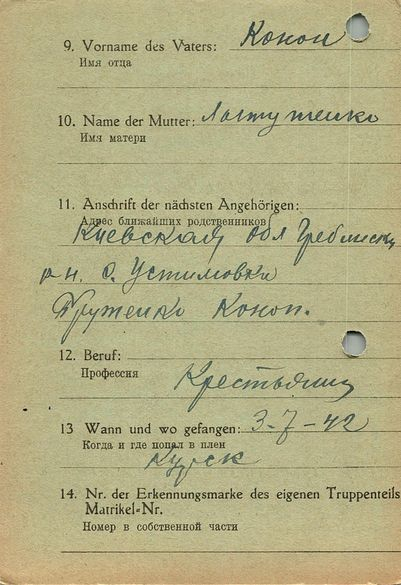 9. Vorname des Vaters: Конон
Имя отца
10. Name der Mutter: Лоттутенко
Имя матери
11. Anschrift der nächsten Angehörigen:
Адрес ближайших родственников
Киевская обл Гребинский
р-н. с. Устимовка
Трутенко Конон.
12. Beruf:
Профессия
Крестьянин
13 Wann und wo gefangen: 3-7-42
Когда и где попал в плен
Курск
14. Nr. der Erkennungsmarke des eigenen Truppenteils
Matrikel=Nr.
Номер в собственной части